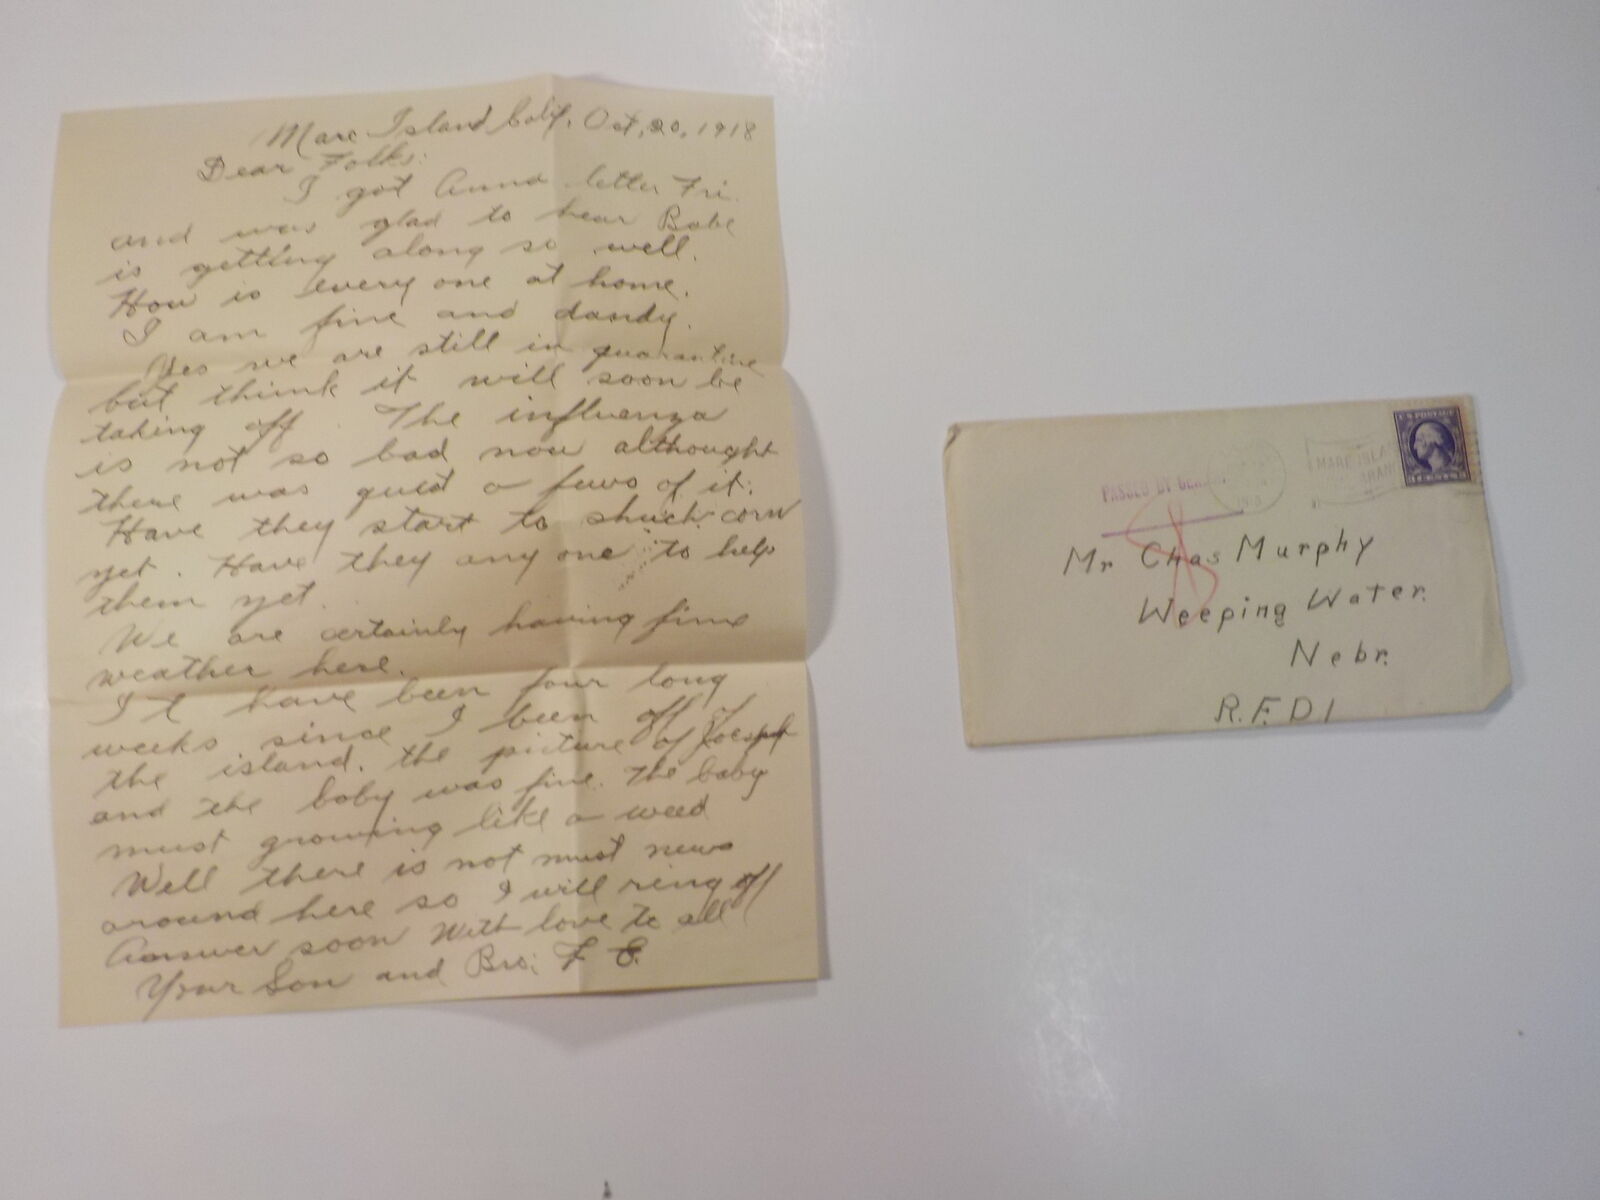 Mare Island Calif. Oct, 20, 1918
Dear Folks:
I got Anna letter Fri.
and was glad to hear Babe
is getting along so well.
How is every one at home.
I am fine and dandy.
Yes we are still in quarantine
but think it will soon be
taking off. The influenza
is not so bad now althought
there was quiet a fews of it.
Have they start to shuck corn
yet. Have they any one to help
them yet.
We are certainly having fine
weather here.
It have been four long
weeks since I been off of
the island. the picture of Joesph
and the baby was fine. The baby
must growing like a weed
Well there is not must news
around here so I will ring off
Answer soon With love to all
Your Son and Bro; F. E.
PASSED BY
U.S. POSTAGE
MARE ISLAND
Mr Chas Murphy
Weeping Water.
Nebr.
R.F.D 1